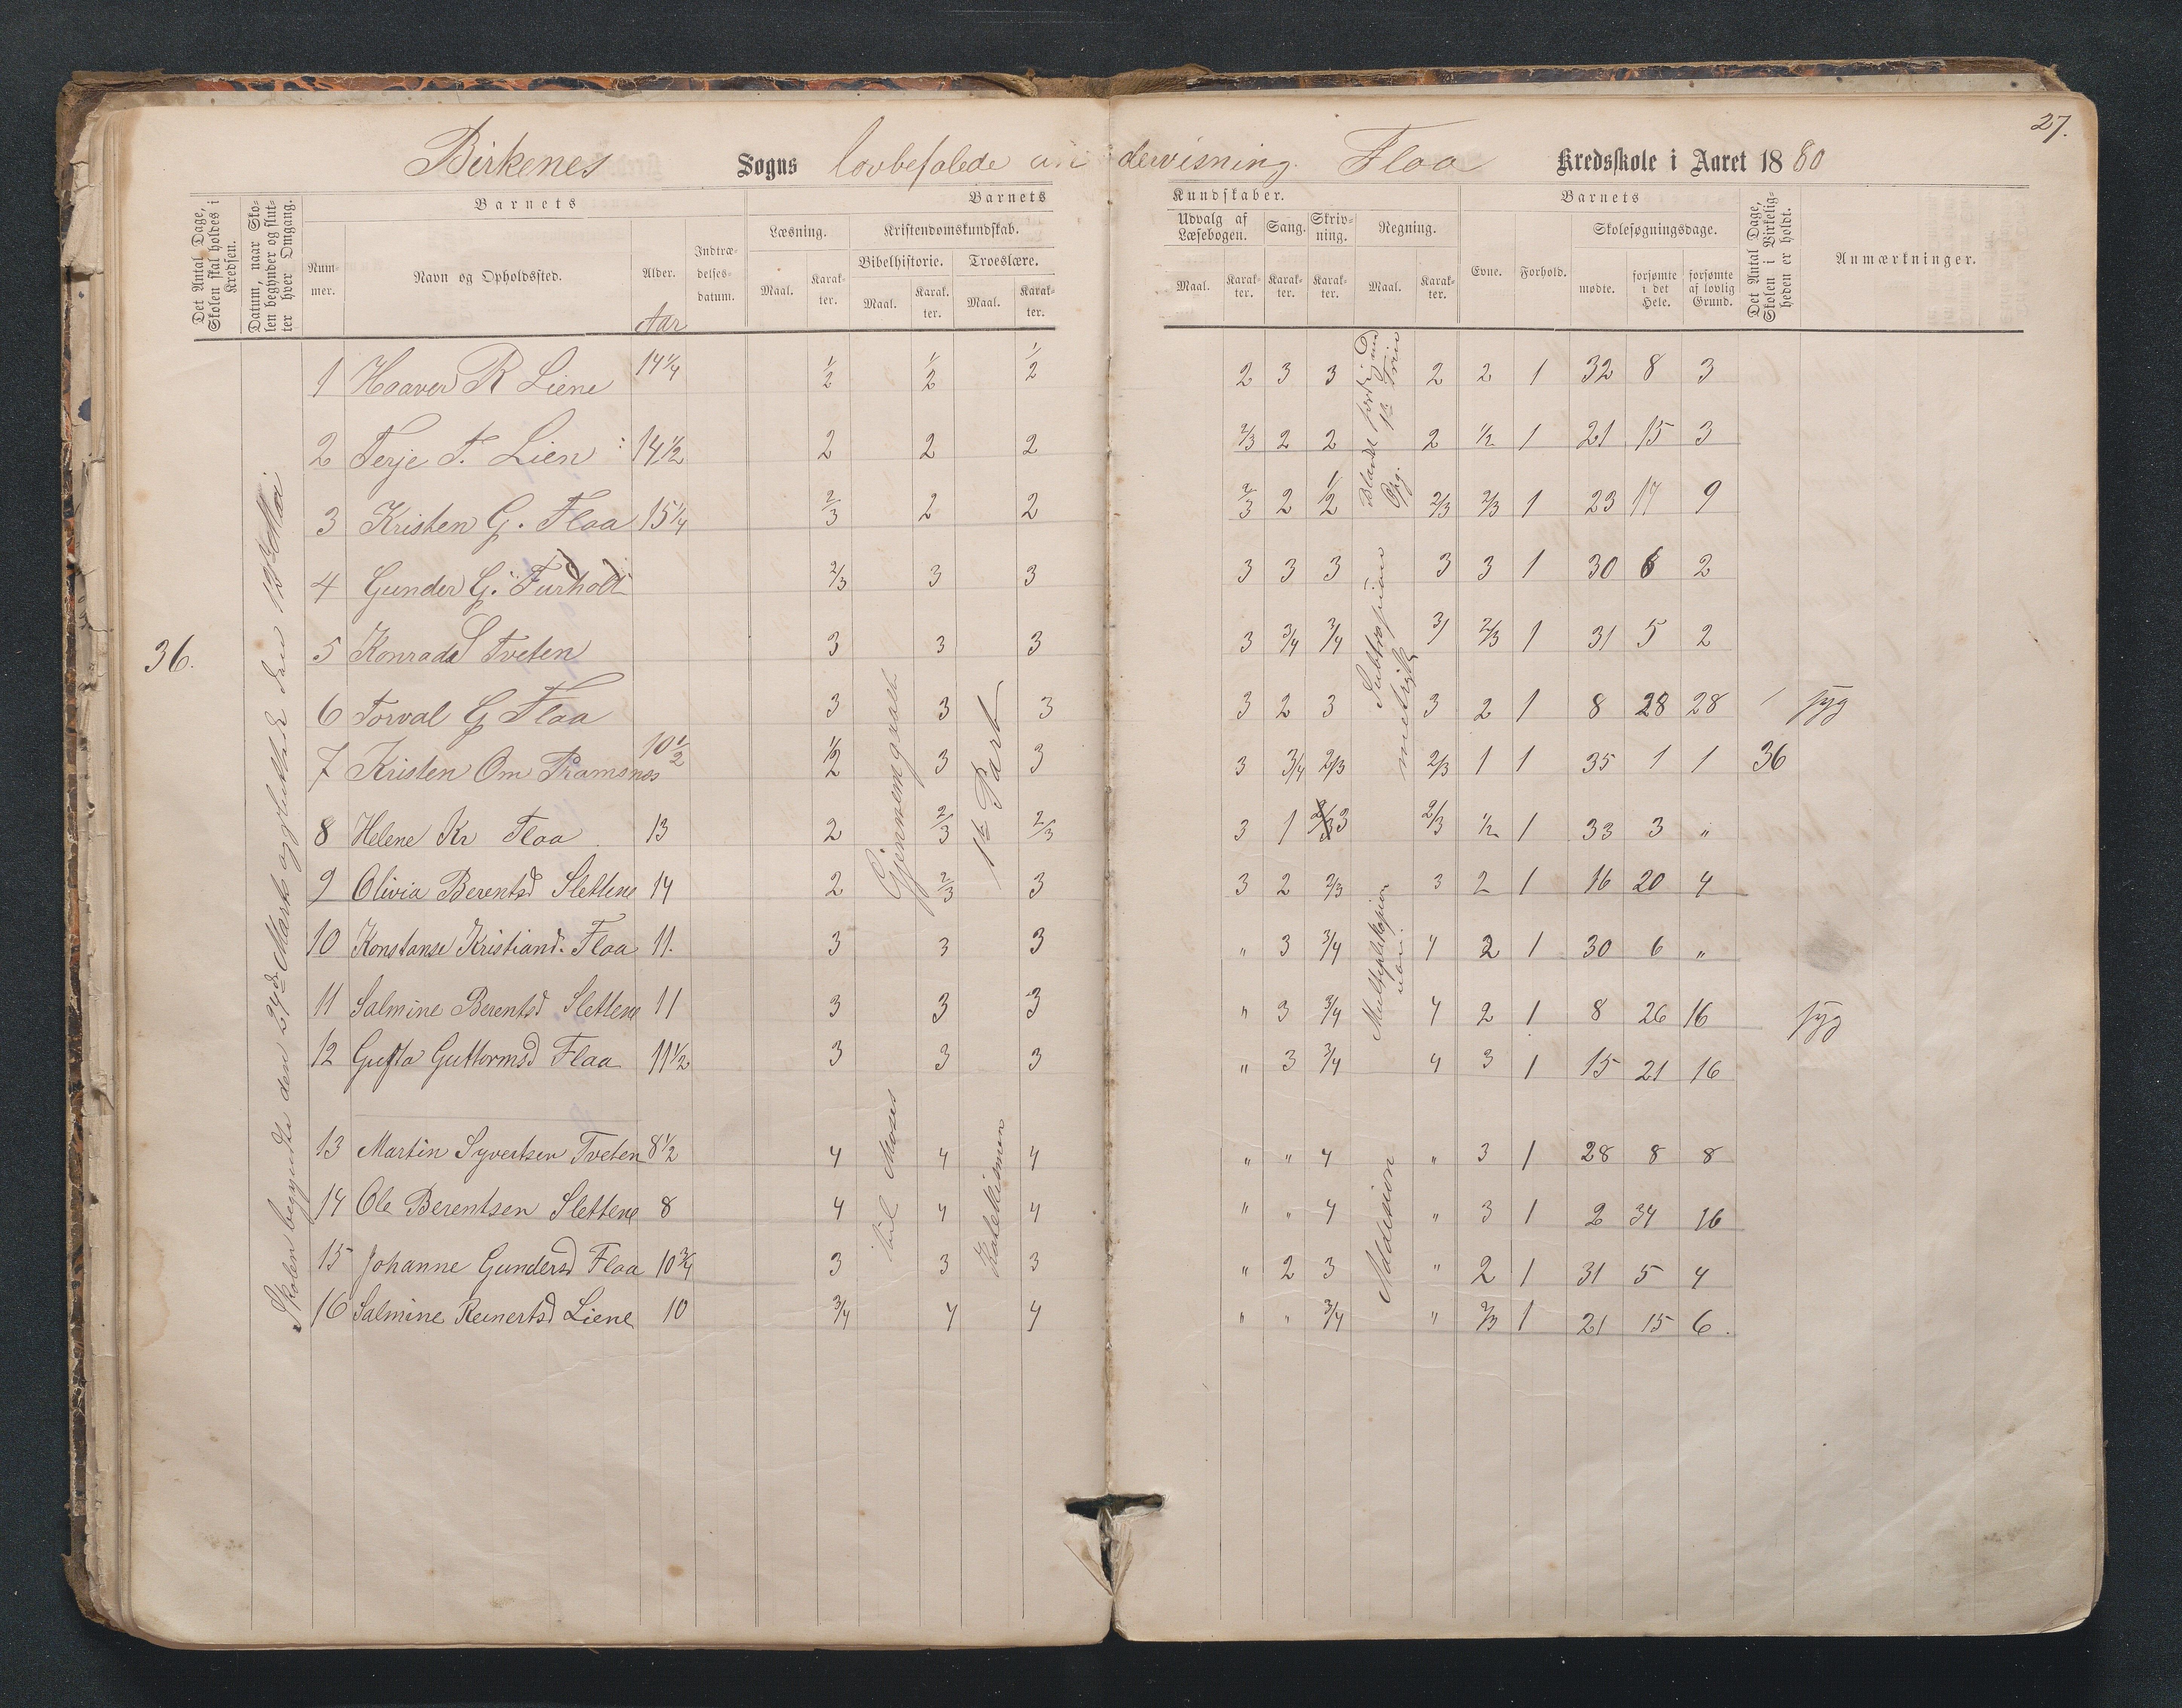 27.
Birkenes Sogns lovbefalede undervisning. Flaa Kredsskole i Aaret 1880
Det Antal Dage, Skolen skal holdes i Kredsen.
Datum, naar Skolen begynder og slutter hver Omgang.
Barnets
Nummer.
Navn og Opholdssted.
Alder.
Aar
Indtrædelsesdatum.
Barnets Kundskaber.
Læsning.
Maal.
Karakter.
Kristendomskundskab.
Bibelhistorie.
Maal.
Karakter.
Troeslære.
Maal.
Karakter.
Udvalg af Læsebogen.
Maal.
Karakter.
Sang.
Karakter.
Skrivning.
Karakter.
Regning.
Maal.
Karakter.
Barnets
Evne.
Forhold.
Skolesøgningsdage.
mødte.
forsømte i det Hele.
forsømte af lovlig Grund.
Det Antal Dage, Skolen i Virkeligheden er holdt.
Anmærkninger.
36.
Skolen begyndte den 29de Marts og sluttede den 12te Mai
1 Haaver R Liene 14 1/4 1/2 1/2 1/2 2 3 3 2 2 1 32 8 3
2 Terje T. Lien 14 1/2 2 2 2 2/3 2 2 2 1/2 1 21 15 3
3 Kristen G. Flaa 15 1/4 2/3 2 2 2/3 2 1/2 2/3 2/3 1 23 17 9
4 Gunder G. Furholt 2/3 3 3 3 3 3 3 3 1 30 6 2
5 Konrad S Tveten 3 3 3 3 3/4 3/4 3/ 2/3 1 31 5 2
6 Torval G Flaa 3 3 3 3 2 3 3 2 1 8 28 28 syg
7 Kristen Om Ramsnes 10 1/2 1/2 3 3 3 3/4 2/3 2/3 1 1 35 1 1 36
8 Helene Kr Flaa 13 2 2/3 2/3 3 1 3 2/3 1/2 1 33 3 "
9 Olivia Berentsd Slettene 14 2 2/3 3 3 2 2/3 3 2 1 16 20 4
10 Konstanse Kristiand. Flaa 11. 3 3 3 " 3 3/4 4 2 1 30 6 "
11 Salmine Berentsd Slettene 11 3 3 3 " 3 3/4 4 2 1 8 26 16 syg
12 Gusta Guttormsd Flaa 11 1/2 3 3 3 " 3 3/4 4 3 1 15 21 16
13 Martin Syvertsen Tveten 8 1/2 4 4 4 " " 4 " 3 1 28 8 8
14 Ole Berentsen Slettene 8 4 4 4 " " 4 " 3 1 2 34 16
15 Johanne Gundersd Flaa 10 3/4 3 3 3 " 2 3 " 2 1 31 5 4
16 Salmine Reinertsd Liene 10 3/4 4 4 " " 3/4 " 2/3 1 21 15 6.
Gjennemgaaet
1ste Part
til Moses
Katekismen
Subtraksion
Multiplikasion
Addision